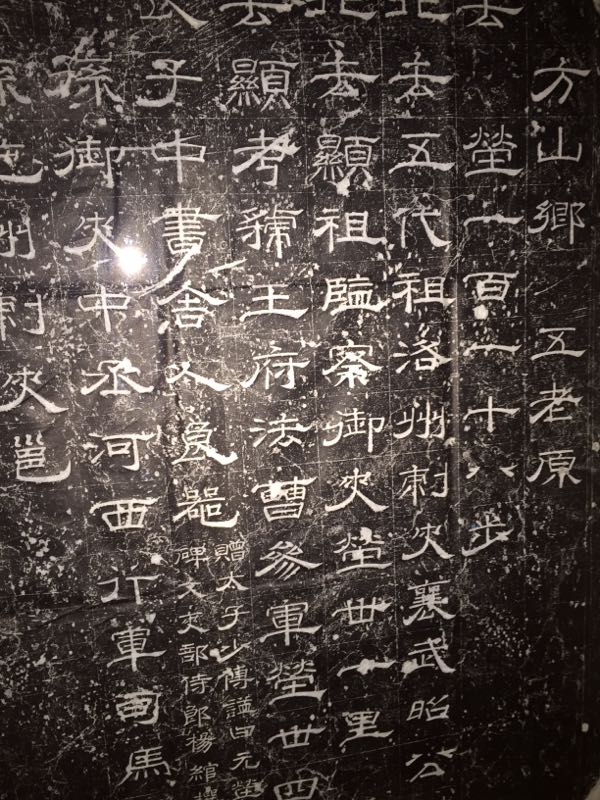 方山鄉 五老原
去塋一百一十八步
北去五代祖洛州刺史襄武昭公
北去顯祖監察御史塋卅一里
去顯考虢王府法曹參軍塋卅四
子中書舍人器
贈太子少傅謚曰元塋
碑文吏部侍郎楊綰撰
孫御史中丞河西行軍司馬
孫州刺史邕